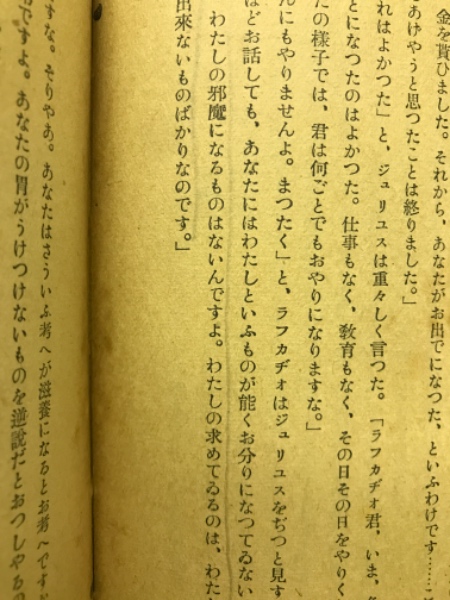 金を貰ひました。それから、あなたがお出でになつた、といふわけです……
しあげやうと思つたことは終りました。」
れはよかつた」と、ジュリユスは重々しく言つた。「ラフカヂオ君、いま、
とになつたのはよかつた。仕事もなく、敎育もなく、その日その日をやりく
たの様子では、君は何ごとでもおやりになりますな。」
んにもやりませんよ。まつたく」と、ラフカヂオはジュリユスをぢつと見す
ほどお話しても、あなたにはわたしといふものが能くお分りになつてゐない
わたしの邪魔になるものはないんですよ。わたしの求めてゐるのは、わた
出來ないものばかりなのです。」
すな。そりやあ。あなたはさういふ考へが滋養になるとお考へです
ですよ。あなたの胃がうけつけないものを逆說だとおつしやるの